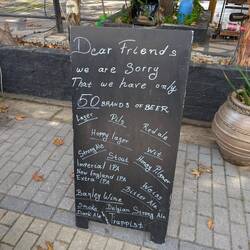 Dear Friends
we are Sorry
That we have only
50 BRANDS OF BEER
Lager Pils Red ale
Hoppy lager Wit
Strong Ale Stout Honey Pilsner
Imperial IPA Weiss
New England IPA
Extra IPA Bitter Ale
Barley Wine
Smoke Belgian Strong Ale
Dark Ale TRAPPIST